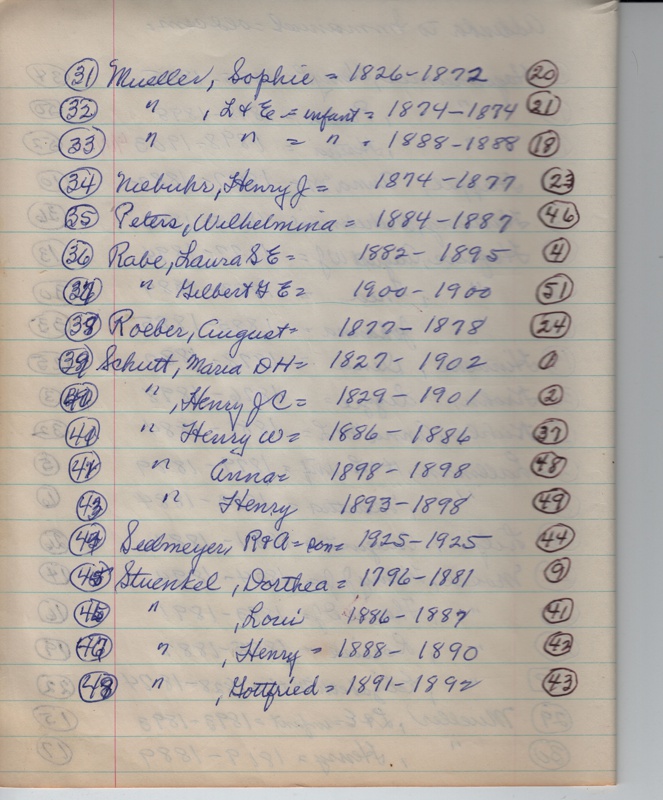 31 Mueller, Sophie = 1826-1872 20
32 " , L & E = infant = 1874-1874 21
33 " " = " = 1888-1888 18
34 Niebuhr, Henry J = 1874-1877 23
35 Peters, Wilhelmina = 1884-1887 46
36 Rabe, Laura S E = 1882-1895 4
37 " Gilbert G E = 1900-1900 51
38 Roeber, August = 1877-1878 24
39 Schutt, Maria DH = 1827-1902 1
40 " , Henry J C = 1829-1901 2
41 " Henry W = 1886-1886 37
42 " Anna = 1898-1898 48
43 " Henry 1893-1898 49
44 Seelmeyer, R & A = son = 1925-1925 44
45 Stuenkel, Dorthea = 1796-1881 9
46 " , Loui 1886-1887 41
47 " , Henry = 1888-1890 42
48 " , Gottfried = 1891-1892 43